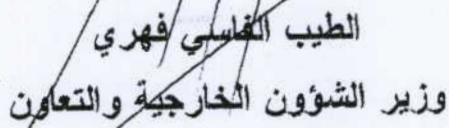 الطيب الفاسي فهري
وزير الشؤون الخارجية والتعاون